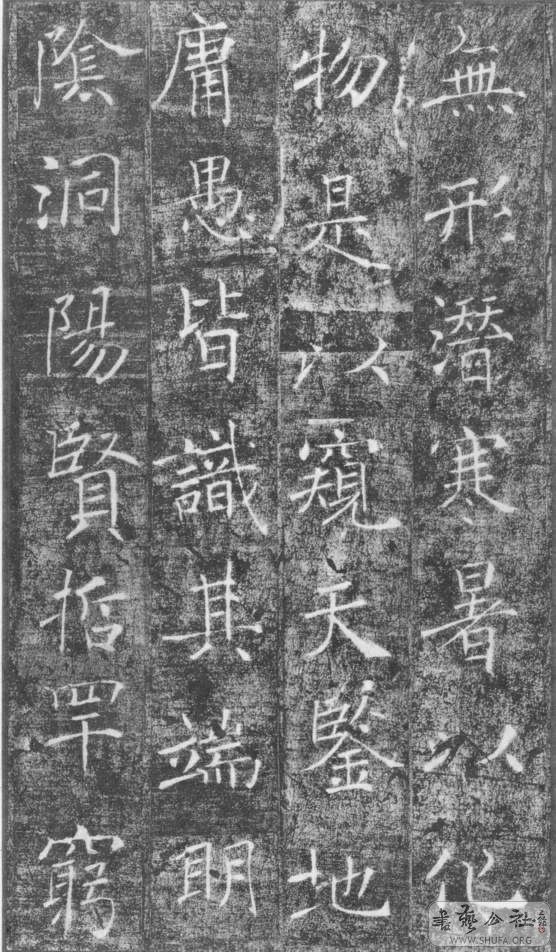 無形潛寒暑以化
物是以窺天鑒地
庸愚皆識其端明
陰洞陽賢哲罕窮
書藝公社
WWW.SHUFA.ORG